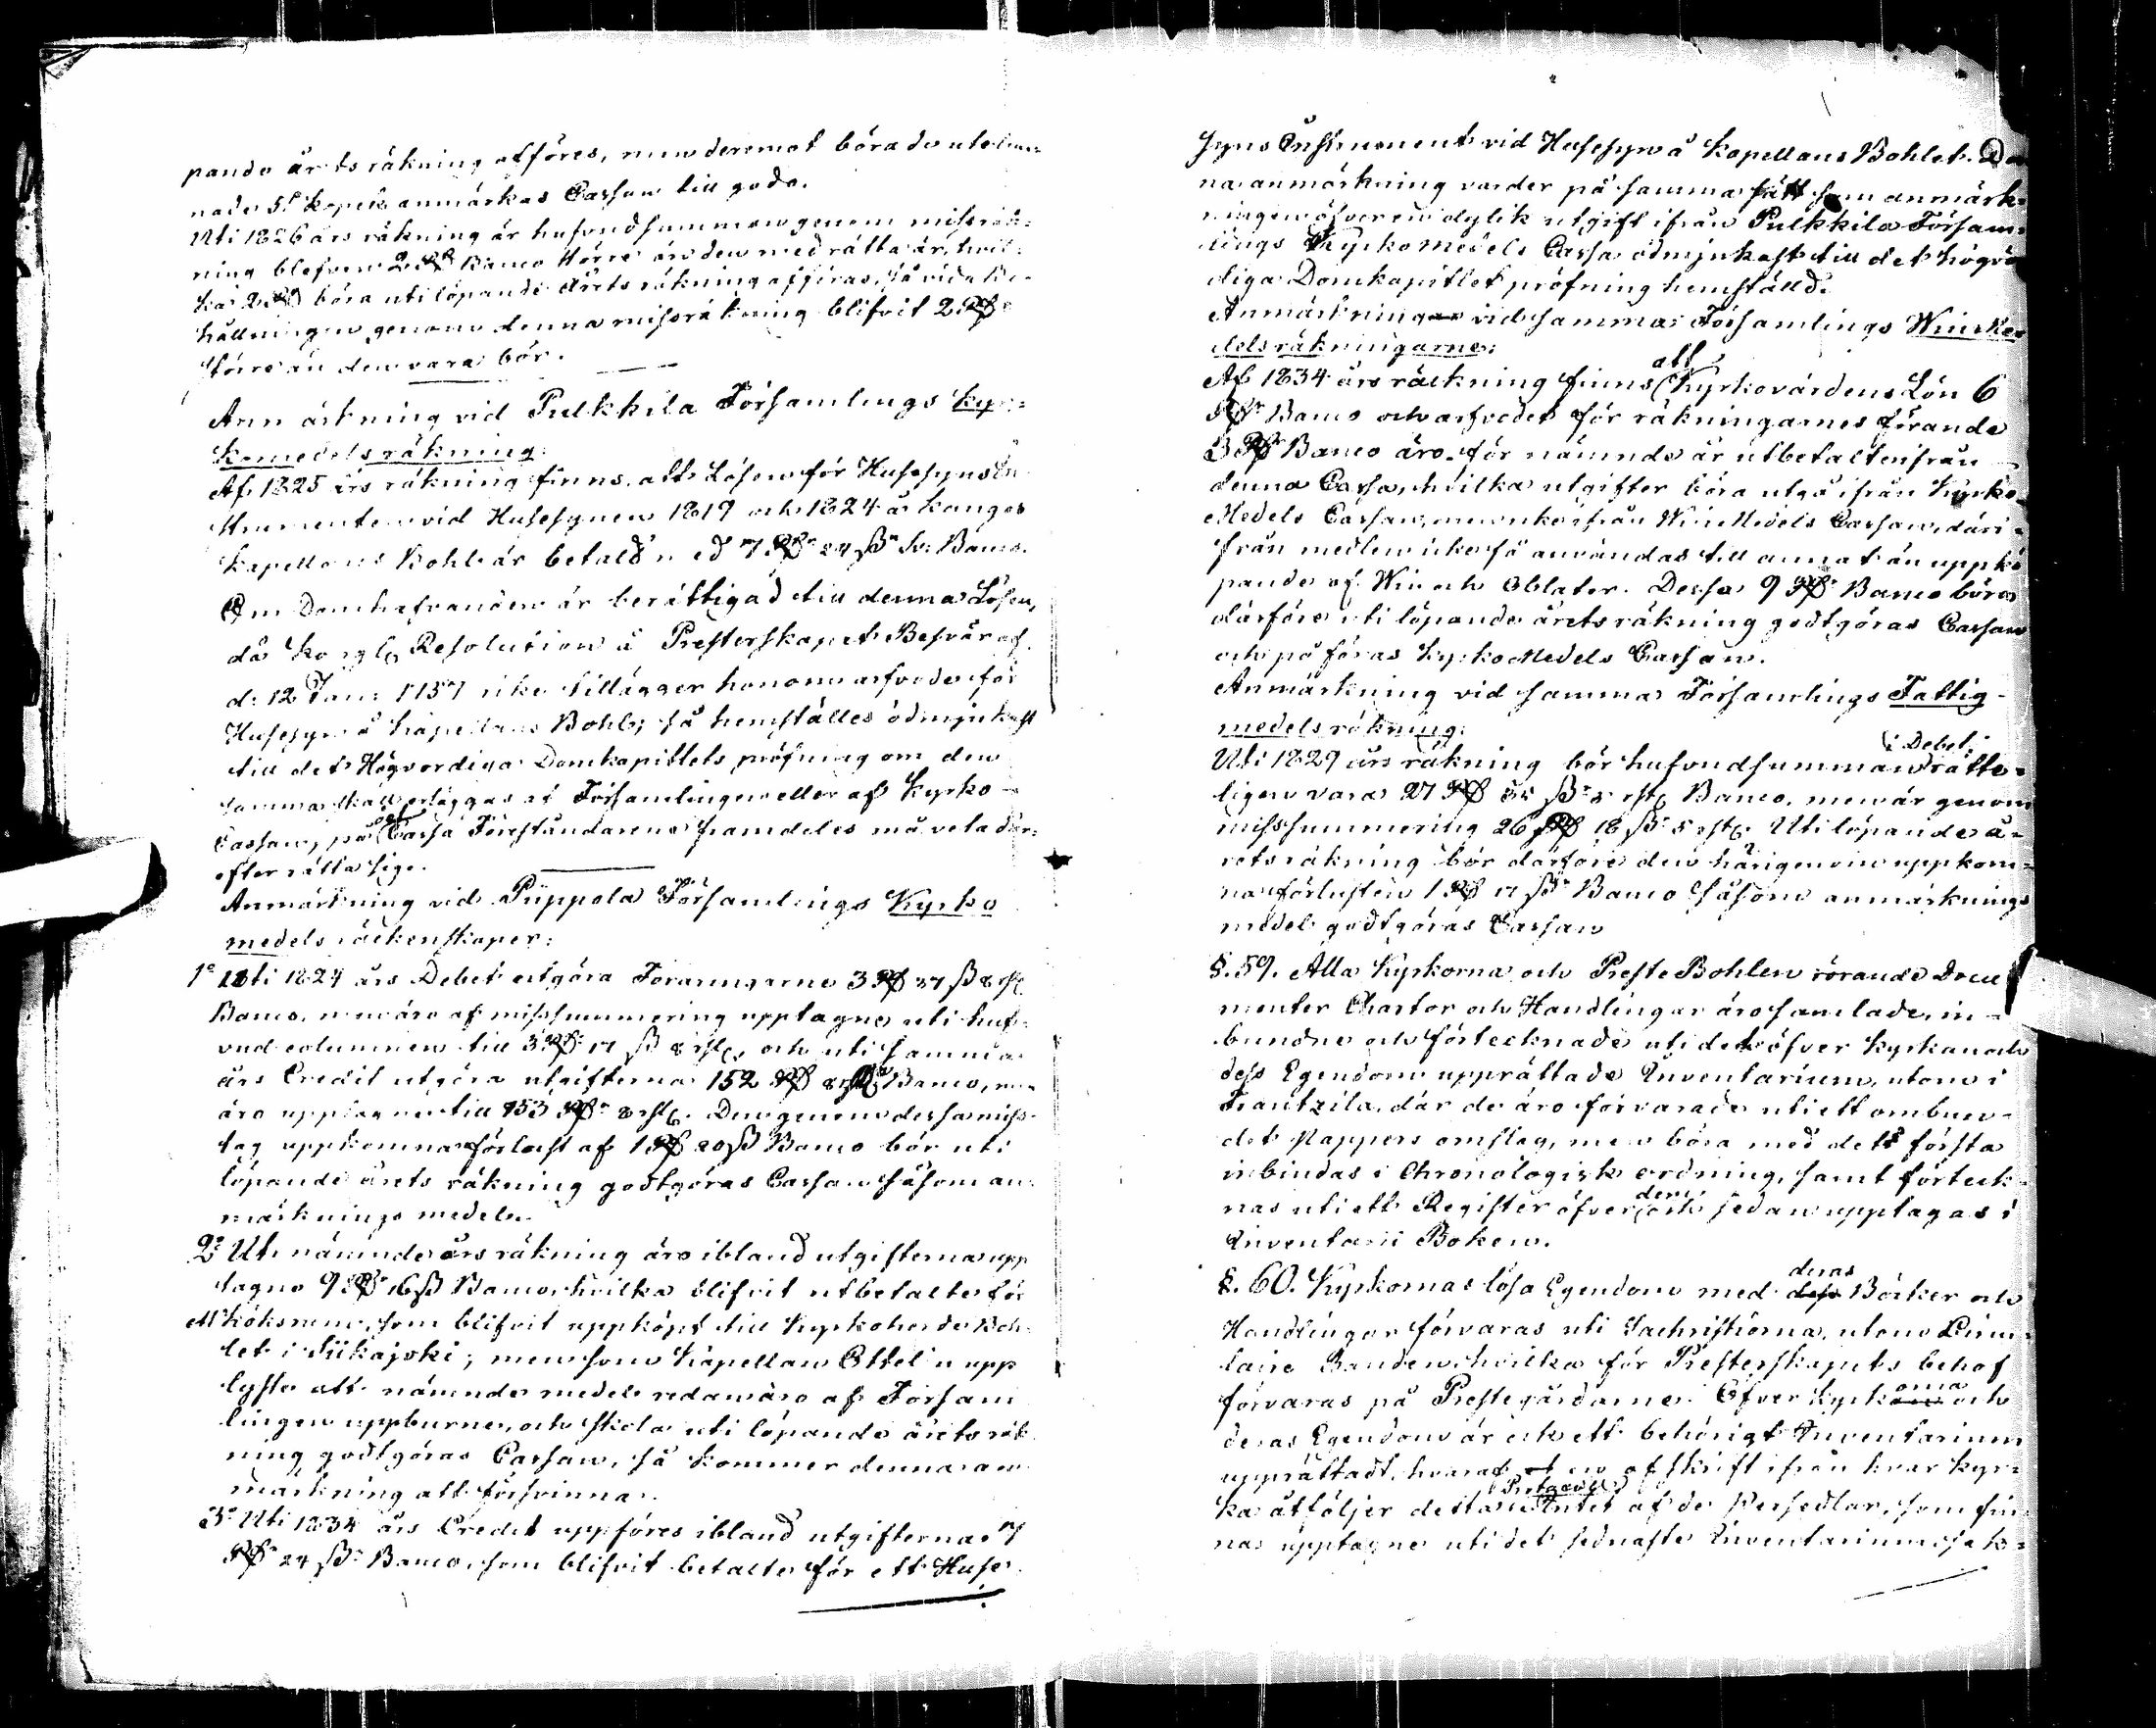 pande årets räkning afföres, men deremot böra de uteläm=
nade 51 kopek anmärkas Cassan till godo.
Uti 1826 års räkning är hufvudsumman genom missräk=
ning blefven 2 Rd Banco större än den med rätta är, hvil=
ka 2 Rd böra uti löpande årets räkning afföras, så vida Be=
hållningen genom denna missräkning blifvit 2 Rd
större än den vara bör.
Anmärkning vid Pulkkila Församlings Kyr=
komedelsräkning:
Af 1825 års räkning finns, att Lösen för Husesyns In
strumenten vid Husesynen 1819 och 1824 å Kanges
Kapellans Bohl är betald med 7 Rd 24 ß Sv: Banco.
Om Domhafvanden är berättigad till denna Lösen,
då Kongl. Resolution å Presterskapets Besvär af
d: 12 Jan: 1757 icke tillägger honom arfvode för
Husesyn å Kapellans Bohl; så hemställes ödmjukast
till det Högvördiga Domkapitlets pröfning om den
samma skall erläggas af Församlingen eller af Kyrko
Cassan, på att Cassa Föreståndarena framdeles må veta der=
efter rätta sig.
Anmärkning vid Piippola Församlings Kyrko
medels räkenskaper:
1o Uti 1824 års Debet utgöra Foranngarne 3 Rd 37 ß 8 rst
Banco, men äro af misssummering upptagne uti huf=
vud columnen till 3 Rd 17 ß 8 rst, och uti samma
års Credit utgöra utgifterna 152 Rd 8 rst Banco, men
äro upptagne till 153 Rd 8 rst. Den genom dessa miss
tag uppkomna förlust af 1 Rd 20 ß Banco bör uti
löpande årets räkning godtgöras Cassan såsom an
märknings medel.
2o Uti nämnde års räkning äro ibland utgifterna upp
tagne 9 Rd 16 ß Banco, hvilka blifvit utbetalte för
Köksmur, som blifvit uppköpt till Kyrkoherde Boh=
let i Siikajoki; men som Kapellan Ottelin upp
lyste att nämnde medel redan äro af Försam
lingen uppburne, och skola uti löpande årets räk
ning godtgöras Cassan, så kommer denna an
märkning att försvinna.
3o Uti 1834 års Credit uppföres ibland utgifterna 7
Rd 24 ß Banco, som blifvit betalte för ett Huse
syns Instrument vid Husesyn å Kapellans Bohlet. Den
na anmärkning varder på samma sätt som anmärk
ningen öfver en dylik utgift ifrån Pulkkila Försam=
lings Kyrkomedels Cassa ödmjukast till det högvör
diga Domkapitlet pröfning hemställd.
Anmärkningar vid samma Församlings Winme
delsräkningarne:
Af 1834 års räckning finns att Kyrkovärdens Lön 6
Rd Banco och arfvodet för räkningarnes förande
3 Rd Banco äro för nämnde år utbetalte ifrån
denna Cassa, hvilka utgifter böra utgå ifrån Kyrko
Medels Cassan, men icke ifrån Win Medels Cassan, däri=
från medlen icke få användas till annat än uppkö
pande af Win och Oblater. Dessa 9 Rd Banco böra
därföre uti löpande årets räkning godtgöras Cassan
och påföras Kyrko Medels Cassan.
Anmärkning vid samma Församlings Fattig-
medelsräkning:
Uti 1829 års räkning bör hufvudsumman i Debet rätte=
ligen vara 27 Rd 35 ß 5 rst Banco, men är genom
misssummering 26 Rd 18 ß 5 rst. Uti löpande å=
rets räkning bör därföre den härigenom uppkom=
na förlusten 1 Rd 17 ß Banco såsom anmärknings
medel godtgöras Cassan
§. 59. Alla Kyrkorna och Preste Bohlen rörande Docu
menter Chartor och Handlingar äro samlade, in=
bundne och förtecknade uti det öfver Kyrkan och
dess Egendom upprättade Inventarium, utom i
Frantzila, där de äro förvarade uti ett ombun=
det Pappers omslag, men böra med det första
inbindas i Chronologisk ordning, samt förteck=
nas uti ett Register öfver dem och sedan upptagas i
Inventarii Boken.
§. 60. Kyrkornas lösa Egendom med deras Böcker och
Handlingar förvaras uti Sachristiorna, utom Circu=
laire Banden, hvilka för Presterskapets behof
förvaras på Prestegårdarne. Öfver Kyrkorna och
deras Egendom är ock ett behörigt Inventarium
upprättadt, hvaraf en afskrift ifrån hvar Kyr=
ka åtföljer detta Intet af de Persedlar, som fin
nas upptagne uti det sednaste Inventarium sak=